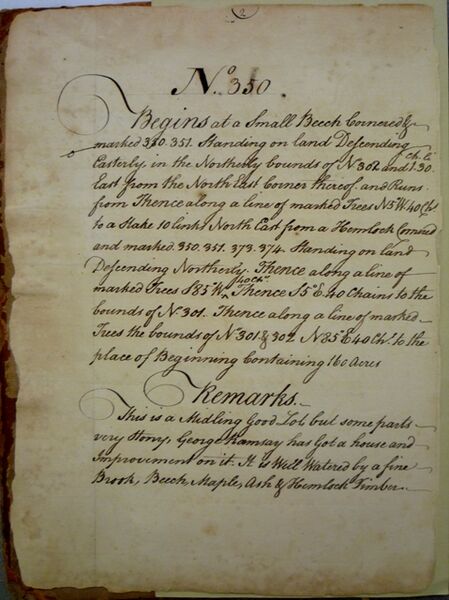 2
No. 350.
Begins at a Small Beech Cornered &
marked 350. 351. Standing on land Descending
Easterly, in the Northerly bounds of No. 302 and 1.30
Ch. L.
East from the North East Corner thereof. and Runs
from Thence along a line of marked Trees N5°W. 40 Chs.
to a Stake 10 links North East from a Hemlock Cornered
and marked. 350. 351. 373. 374. Standing on land
Descending Northerly. Thence along a line of
marked Trees S85°W. 40 Chs. Thence S5°E. 40 Chains to the
bounds of No. 301. Thence along a line of marked
Trees the bounds of No. 301 & 302 N85°E 40 Ch. to the
place of Beginning Containing 160 Acres
Remarks.
This is a Midling Good Lot, but some parts
very Stony, George Ramsay has Got a house and
Improvement on it. It is Well Watered by a fine
Brook, Beech, Maple, Ash & Hemlock Timber.